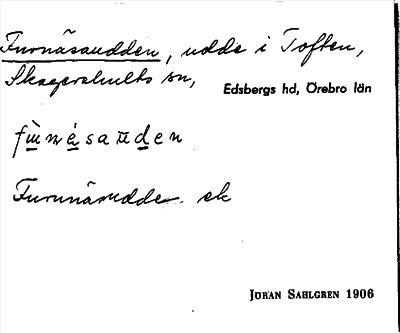 Furnäsaudden, udde i Toften,
Skagershults sn,
Edsbergs hd, Örebro län
Furunäsudde. ek
JÖRAN SAHLGREN 1906